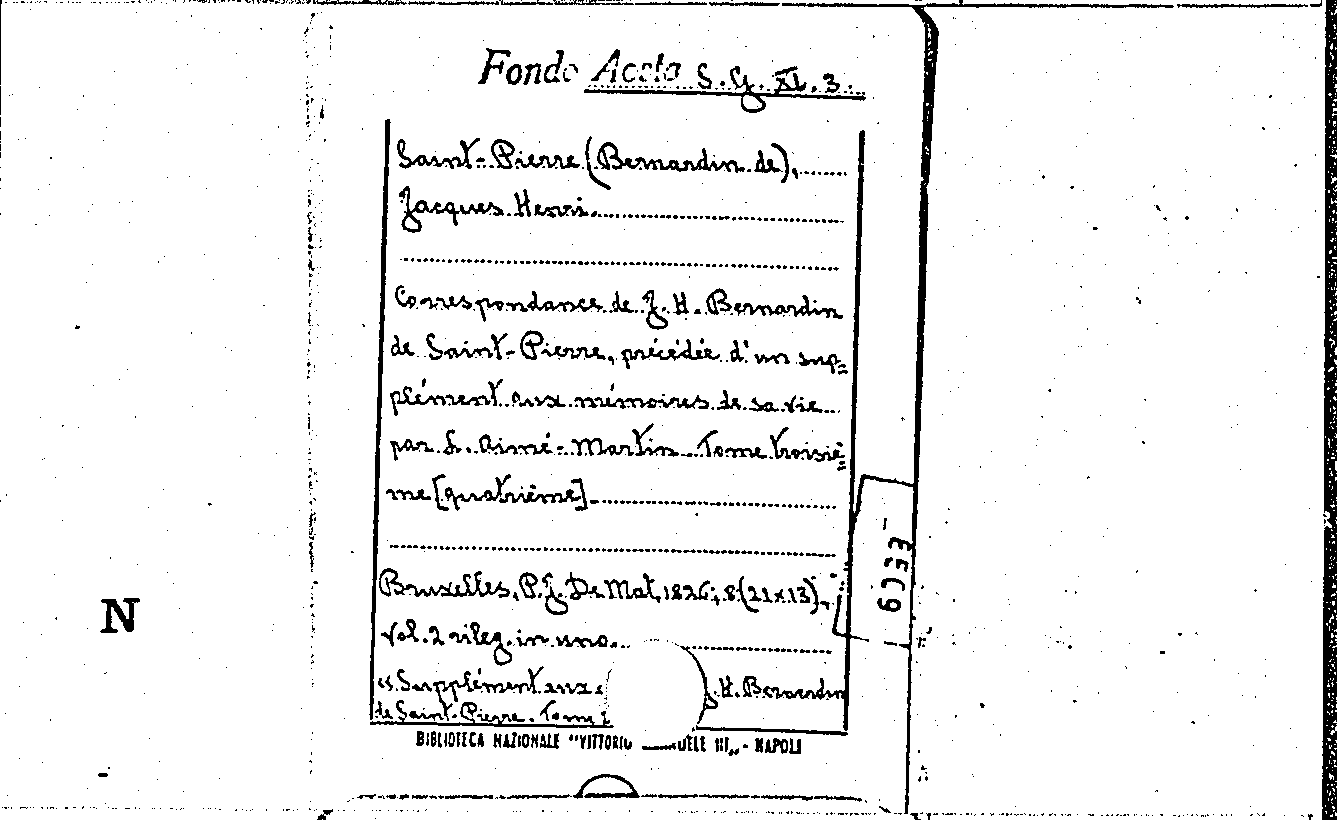 Fondo Aosta S. G. XI. 3.
Saint-Pierre (Bernardin de),
Jacques Henri.
Correspondance de J. H. Bernardin
de Saint-Pierre, précédée d'un sup=
plément aux mémoires de sa vie
par L. Aimé-Martin. Tome troisiè=
me [quatrième].
Bruxelles, P. J. De Mat, 1826; 8.(21x13).
vol. 2 rileg. in uno.
« Supplément aux J. H. Bernardin
de Saint-Pierre. Tome
BIBLIOTECA NAZIONALE "VITTORIO UELE III„ - NAPOLI
N